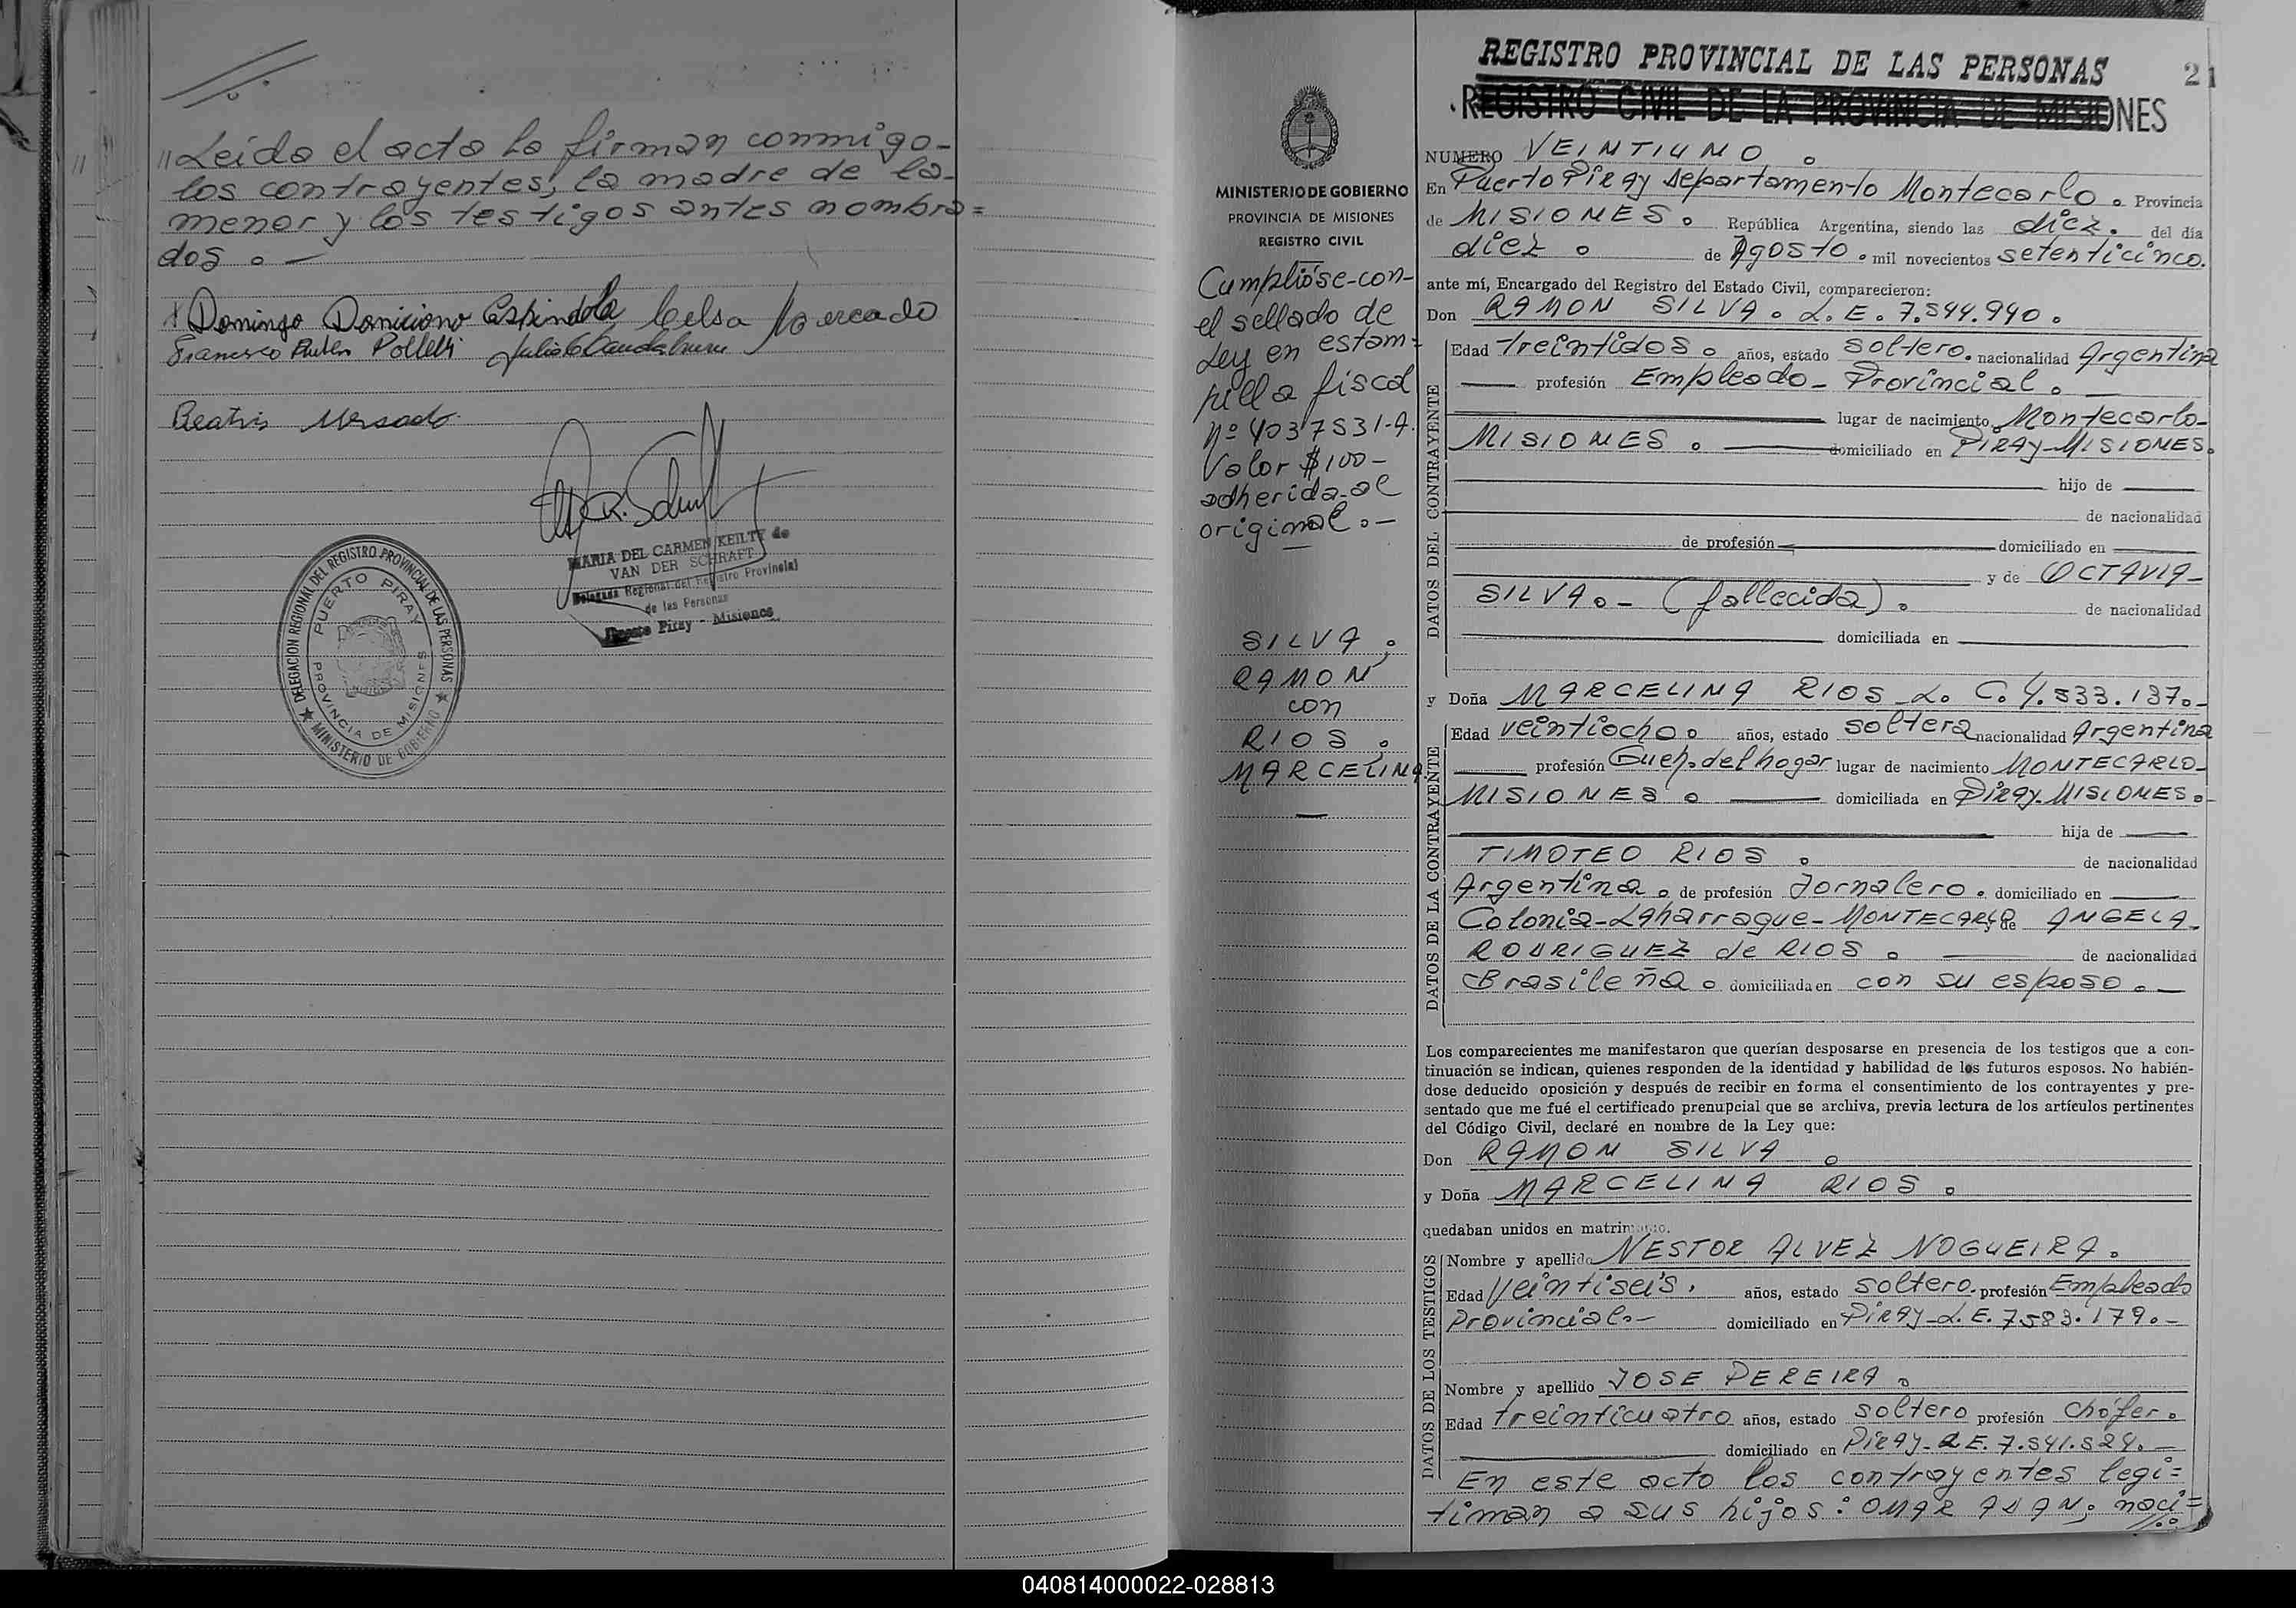 "Leido el acto la firman conmigo-
los contrayentes, la madre de la-
menor y los testigos antes nombra=
dos.-
Domingo Daniciano Espindola Celsa Mercado
Francisco
Beatris Mersado
MARIA DEL CARMEN KEILTY de
VAN DER SCHRAFT
Delegada Regional del Registro Provincial
de las Personas
Puerto Piray - Misiones
DELEGACION REGIONAL DEL REGISTRO PROVINCIAL DE LAS PERSONAS
MINISTERIO DE GOBIERNO
PUERTO PIRAY
PROVINCIA DE MISIONES
MINISTERIO DE GOBIERNO
PROVINCIA DE MISIONES
REGISTRO CIVIL
Cumplióse-con-
el sellado de
Ley en estam=
pilla fiscal
Nº 4037531-A.
Valor $100-
adherida-al
original.-
SILVA;
RAMON
con
RIOS;
MARCELINA
REGISTRO PROVINCIAL DE LAS PERSONAS 21
REGISTRO CIVIL DE LA PROVINCIA DE MISIONES
NUMERO VEINTIUNO.
En Puerto Piray departamento Montecarlo. Provincia
de MISIONES. República Argentina, siendo las diez. del día
diez. de Agosto. mil novecientos setenticinco.
ante mí, Encargado del Registro del Estado Civil, comparecieron:
Don RAMON SILVA. L.E. 7.544.940.
DATOS DEL CONTRAYENTE
Edad treintidos. años, estado soltero. nacionalidad Argentina
profesión Empleado-Provincial.
lugar de nacimiento Montecarlo-
MISIONES. domiciliado en PIRAY-MISIONES.
hijo de
de nacionalidad
de profesión domiciliado en
y de OCTAVIA-
SILVA.-(fallecida). de nacionalidad
domiciliada en
y Doña MARCELINA RIOS-L.C. 4.533.137.-
DATOS DE LA CONTRAYENTE
Edad veintiocho. años, estado soltera nacionalidad Argentina
profesión Queh.del hogar lugar de nacimiento MONTECARLO-
MISIONES. domiciliada en Piray-MISIONES.
hija de
TIMOTEO RIOS. de nacionalidad
Argentina. de profesión Jornalero. domiciliado en
Colonia-Laharrague-MONTECARLO y de ANGELA-
RODRIGUEZ de RIOS. de nacionalidad
Brasileña. domiciliada en con su esposo.-
Los comparecientes me manifestaron que querían desposarse en presencia de los testigos que a con-
tinuación se indican, quienes responden de la identidad y habilidad de los futuros esposos. No habién-
dose deducido oposición y después de recibir en forma el consentimiento de los contrayentes y pre-
sentado que me fué el certificado prenupcial que se archiva, previa lectura de los artículos pertinentes
del Código Civil, declaré en nombre de la Ley que:
Don RAMON SILVA.
y Doña MARCELINA RIOS.
quedaban unidos en matrimonio.
DATOS DE LOS TESTIGOS
Nombre y apellido NESTOR ALVEZ NOGUEIRA.
Edad Veintiseis. años, estado soltero. profesión Empleado
Provincial.- domiciliado en Piray-L.E. 7.583.179.-
Nombre y apellido JOSE PEREIRA.
Edad treinticuatro años, estado soltero profesión chófer.
domiciliado en Piray-L.E. 7.541.524.-
En este acto los contrayentes legi=
timan a sus hijos: OMAR ADAN; naci=
040814000022-028813